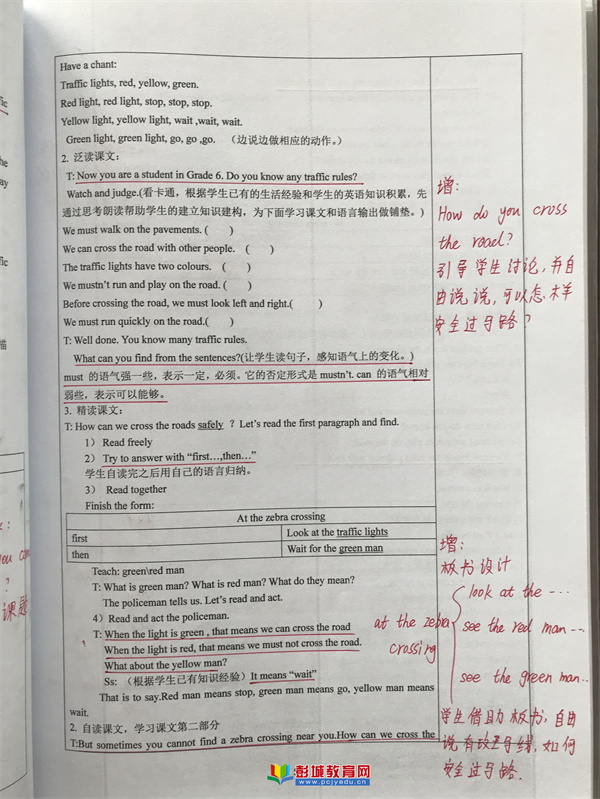 Have a chant:
Traffic lights, red, yellow, green.
Red light, red light, stop, stop, stop.
Yellow light, yellow light, wait ,wait, wait.
Green light, green light, go, go ,go. （边说边做相应的动作。）
2. 泛读课文：
T: Now you are a student in Grade 6. Do you know any traffic rules?
Watch and judge.(看卡通，根据学生已有的生活经验和学生的英语知识积累，先
通过思考朗读帮助学生的建立知识建构，为下面学习课文和语言输出做铺垫。)
We must walk on the pavements. ( )
We can cross the road with other people. ( )
The traffic lights have two colours. ( )
We mustn't run and play on the road. ( )
Before crossing the road, we must look left and right.( )
We must run quickly on the road.( )
T: Well done. You know many traffic rules.
What can you find from the sentences?(让学生读句子，感知语气上的变化。)
must 的语气强一些，表示一定，必须。它的否定形式是 mustn't. can 的语气相对
弱些，表示可以能够。
3. 精读课文：
T: How can we cross the roads safely ？Let's read the first paragraph and find.
1） Read freely
2） Try to answer with “first…,then…”
学生自读完之后用自己的语言归纳。
3） Read together
Finish the form:
At the zebra crossing
first Look at the traffic lights
then Wait for the green man
Teach: green\red man
T: What is green man? What is red man? What do they mean?
The policeman tells us. Let's read and act.
4）Read and act the policeman.
T: When the light is green , that means we can cross the road
When the light is red, that means we must not cross the road.
What about the yellow man?
Ss: （根据学生已有知识经验）It means “wait”
That is to say.Red man means stop, green man means go, yellow man means
wait.
2. 自读课文，学习课文第二部分
T:But sometimes you cannot find a zebra crossing near you.How can we cross the
增：
How do you cross
the road?
引导学生讨论，并自
由说说，可以怎么样
安全过马路？
增：
板书设计
look at the ...
at the zebra
crossing
see the red man...
see the green man...
学生借助板书，自由
说有斑马线，如何
安全过马路.
彭城教育网
www.pcjyedu.cn